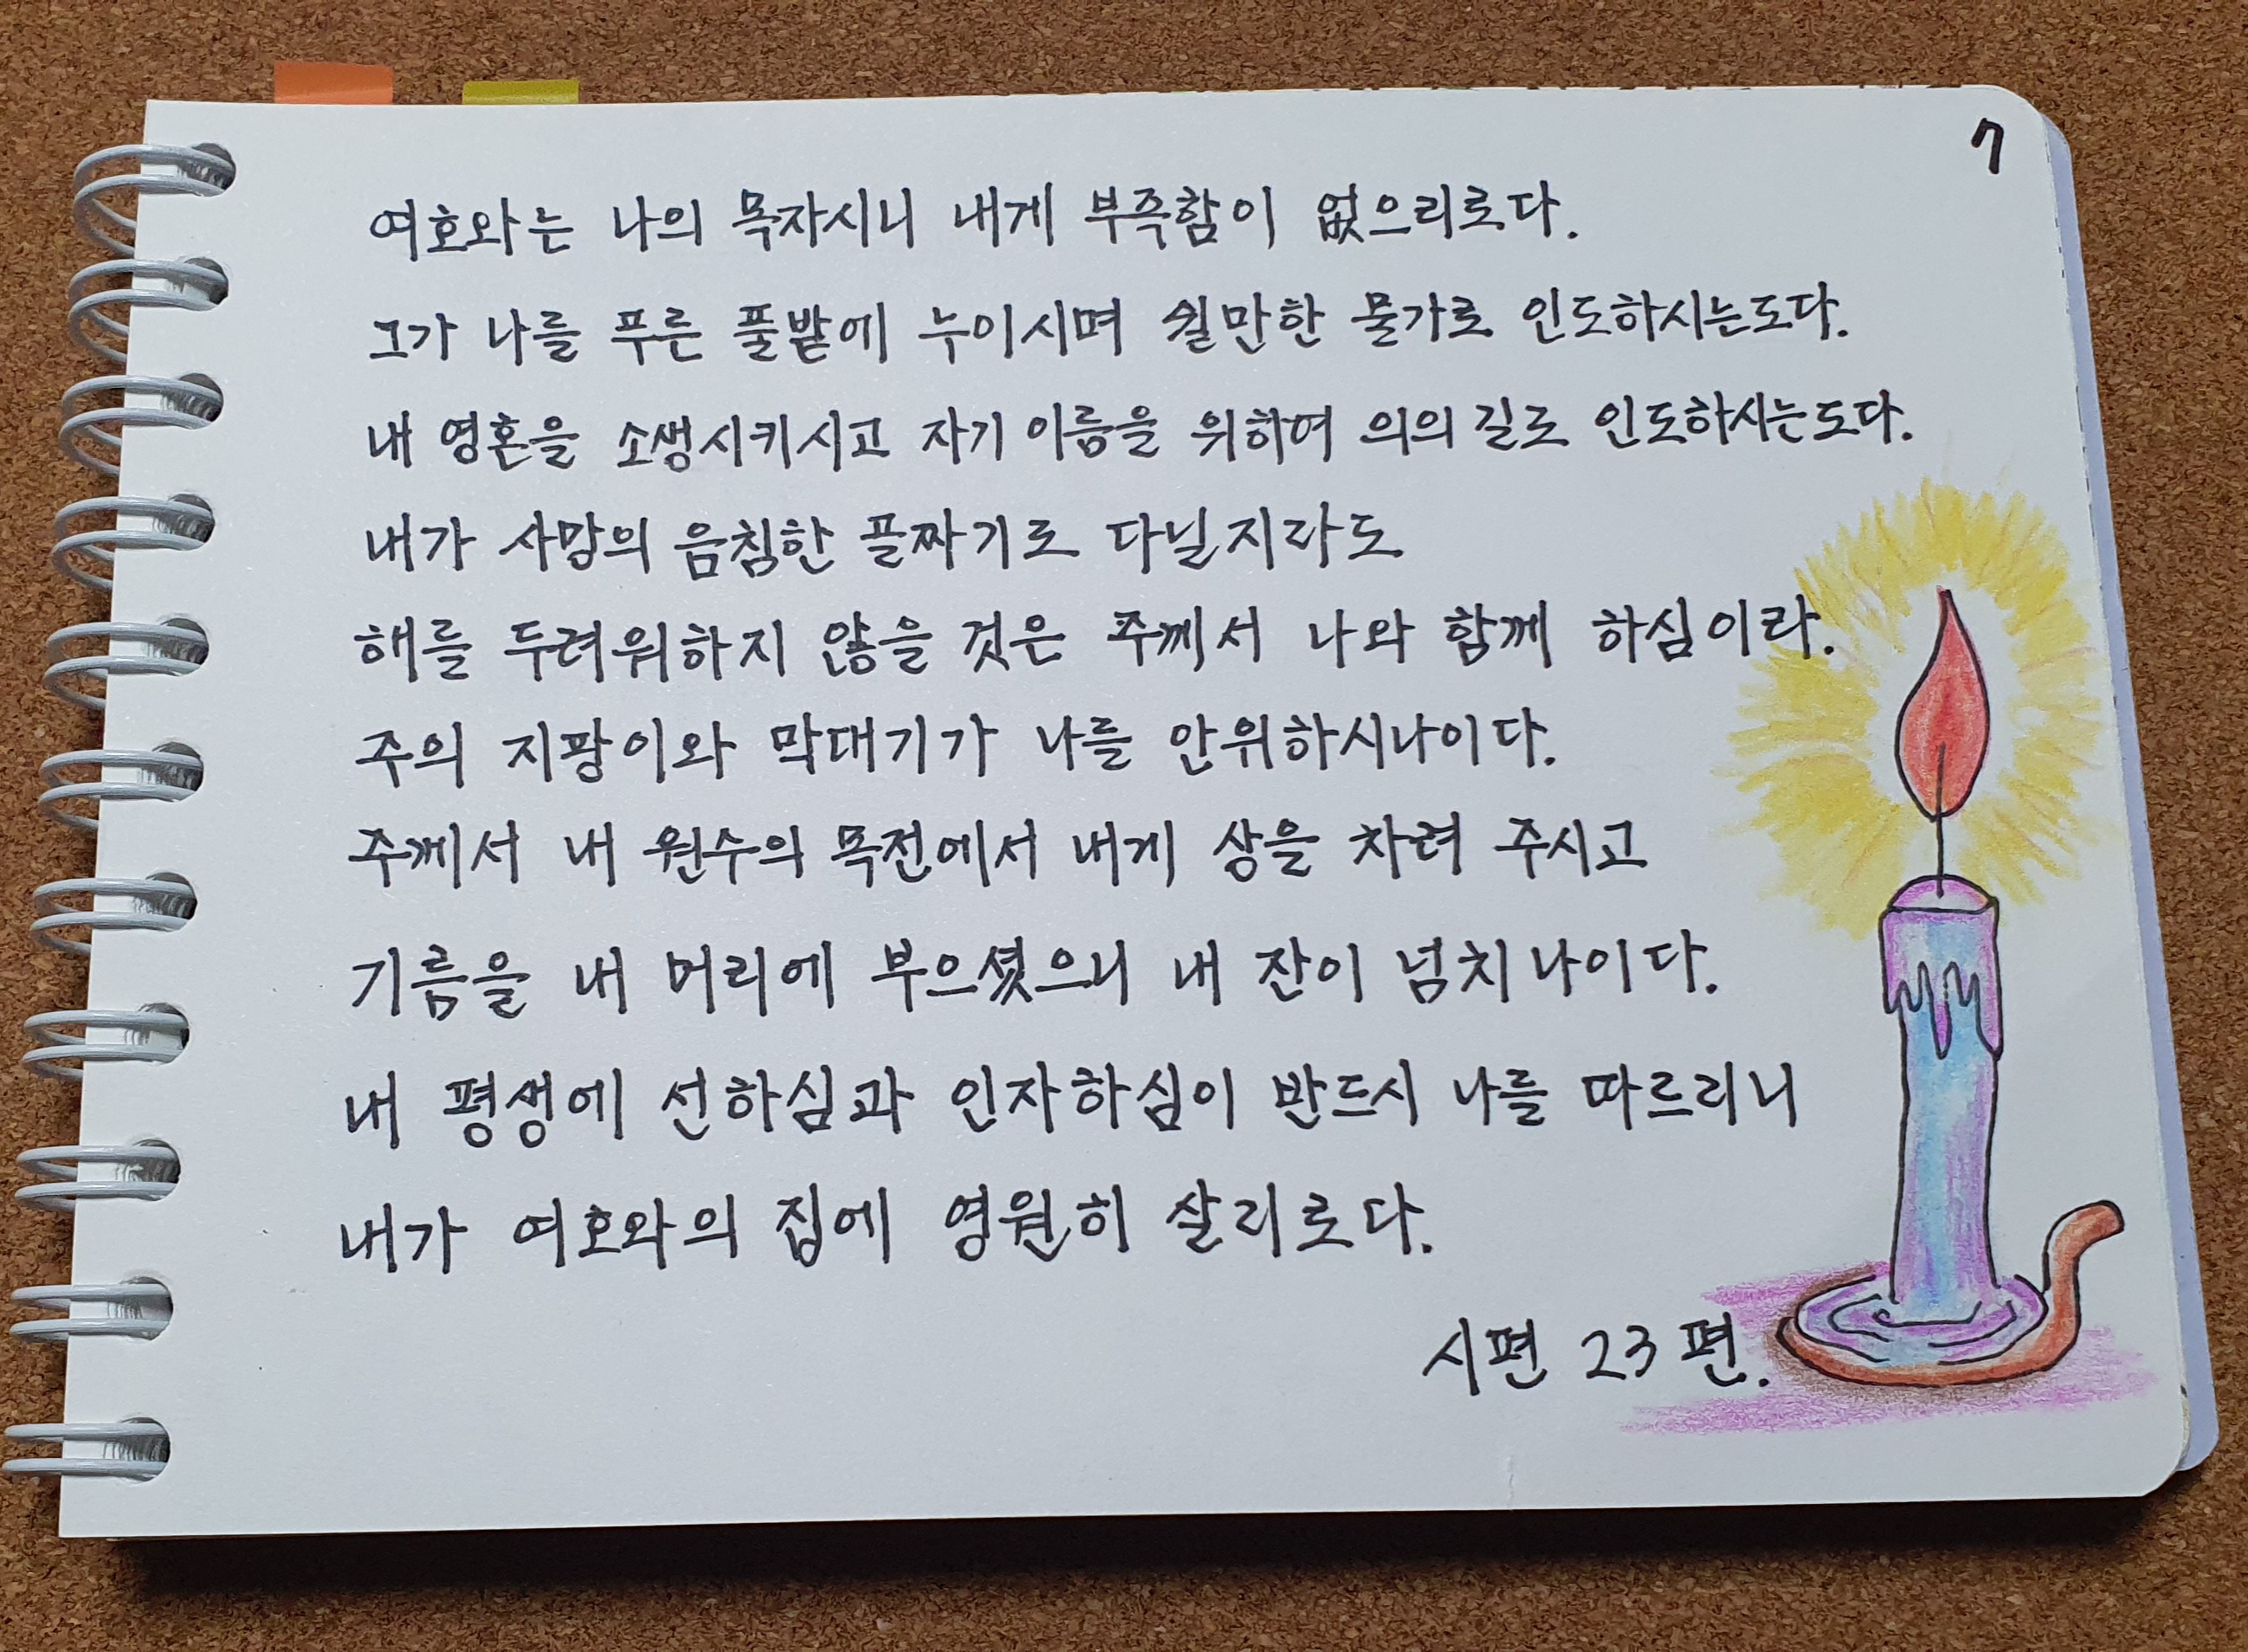 7
여호와는 나의 목자시니 내게 부족함이 없으리로다.
그가 나를 푸른 풀밭에 누이시며 쉴만한 물가로 인도하시는도다.
내 영혼을 소생시키시고 자기 이름을 위하여 의의 길로 인도하시는도다.
내가 사망의 음침한 골짜기로 다닐지라도
해를 두려워하지 않을 것은 주께서 나와 함께 하심이라.
주의 지팡이와 막대기가 나를 안위하시나이다.
주께서 내 원수의 목전에서 내게 상을 차려 주시고
기름을 내 머리에 부으셨으니 내 잔이 넘치나이다.
내 평생에 선하심과 인자하심이 반드시 나를 따르리니
내가 여호와의 집에 영원히 살리로다.
시편 23편.